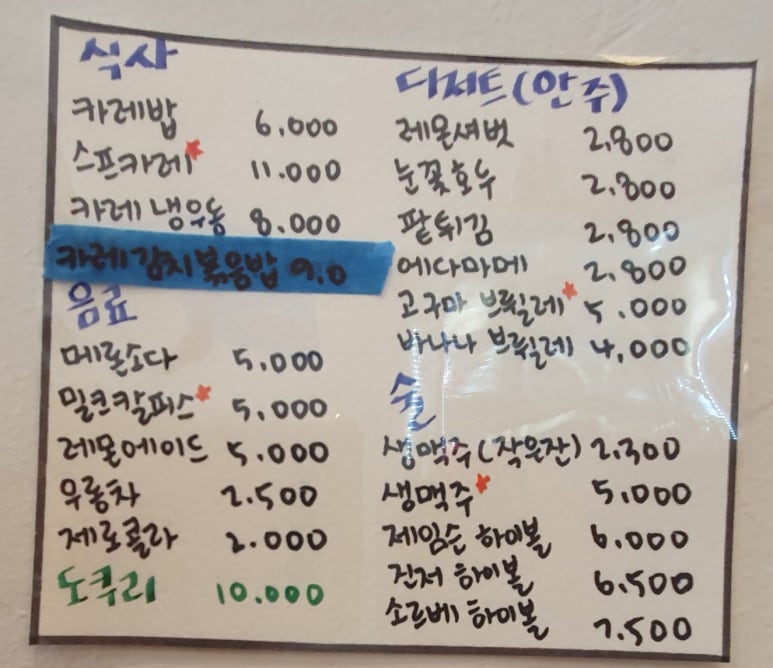 식사
카레밥 6.000
스프카레* 11.000
카레 냉우동 8.000
카레김치볶음밥 9.0
음료
메론소다 5.000
밀크칼피스* 5.000
레몬에이드 5.000
우롱차 2.500
제로콜라 2.000
도쿠리 10.000
디저트(안주)
레몬셔벗 2,800
눈꽃호두 2,800
팥튀김 2,800
에다마메 2,800
고구마 브륄레* 5.000
바나나 브륄레 4,000
술
생맥주(작은잔) 2.300
생맥주* 5.000
제임슨 하이볼 6.000
진저 하이볼 6.500
소르베 하이볼 7.500